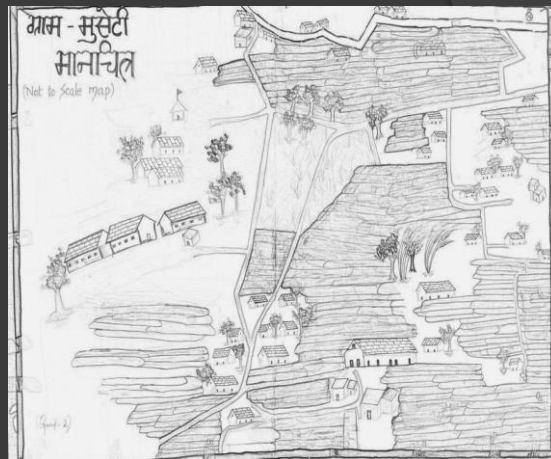 ग्राम - मुसेटी
मानचित्र
(Not to Scale map)